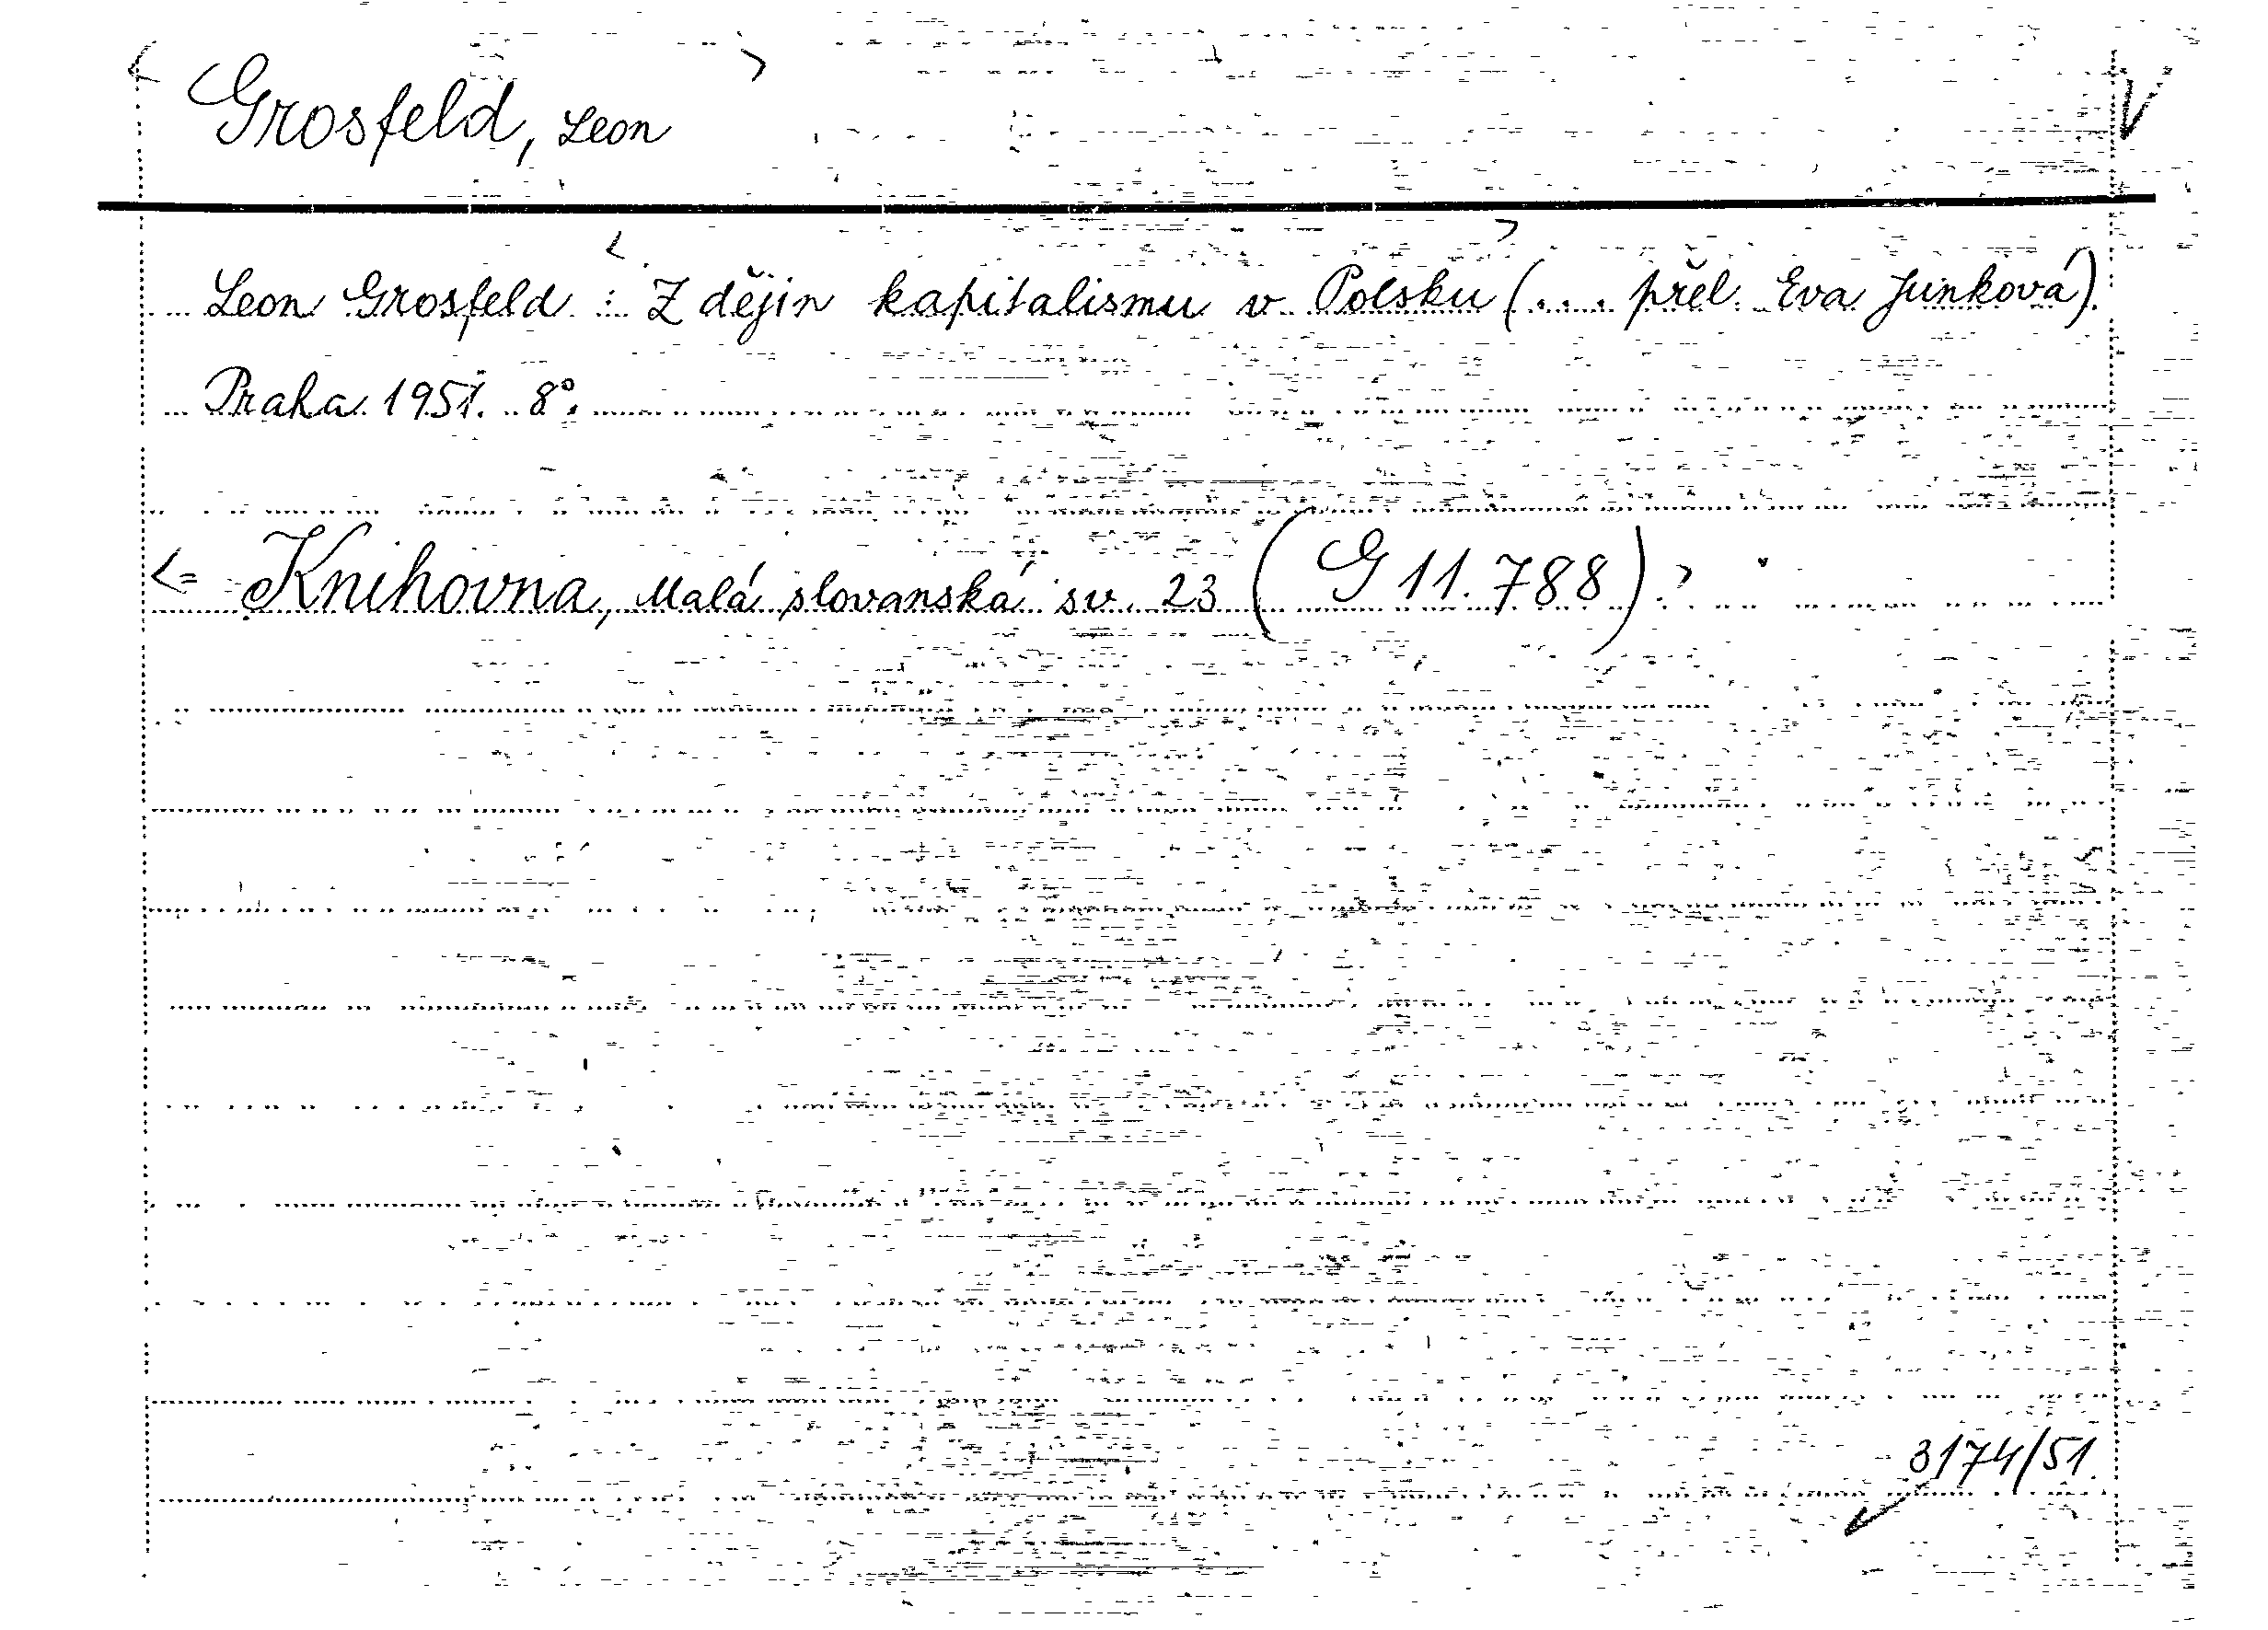 < Grosfeld, Leon >
Leon Grosfeld : < Z dějin kapitalismu v Polsku > (... přel. Eva Junková).
Praha 1951. 8°.
<= Knihovna, Malá slovanská sv. 23 (G 11.788). >
3174/51.